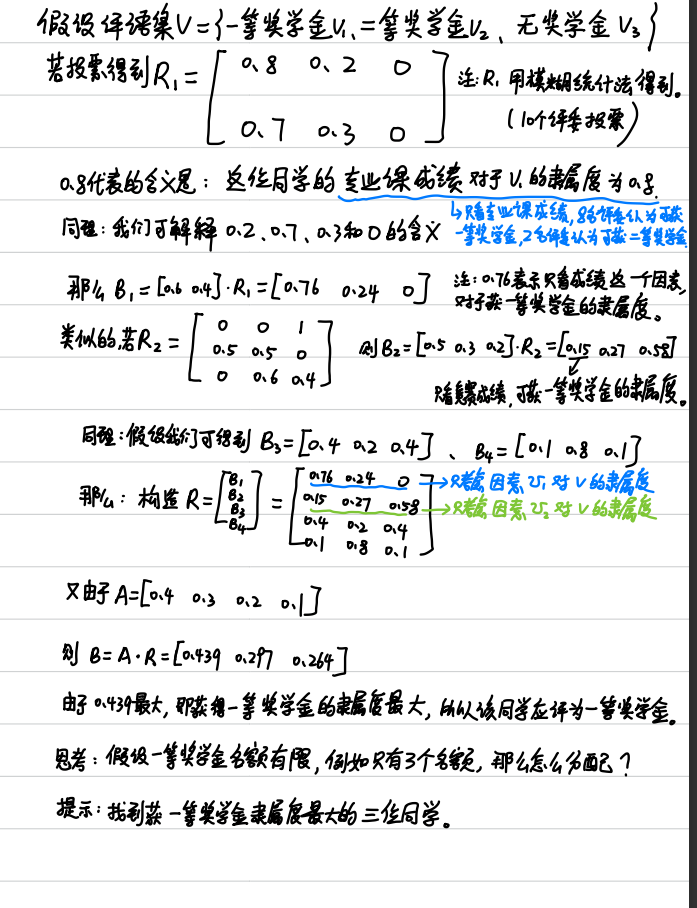 假设评语集V={一等奖学金V₁、二等奖学金V₂、无奖学金V₃}
若投票得到R₁=[0.8 0.2 0
0.7 0.3 0]
注:R₁用模糊统计法得到。
(10个评委投票)
0.8代表的含义是:这位同学的专业课成绩对于V₁的隶属度为0.8.
↳只看专业课成绩,8名评委认为可获
一等奖学金,2名评委认为可获二等奖学金
同理:我们可解释0.2、0.7、0.3和0的含义
那么B₁=[0.6 0.4]·R₁=[0.76 0.24 0]
注:0.76表示只看成绩这一个因素,
对于获一等奖学金的隶属度。
类似的,若R₂=[0 0 1
0.5 0.5 0
0 0.6 0.4]
则B₂=[0.5 0.3 0.2]·R₂=[0.15 0.27 0.58]
只看竞赛成绩,可获一等奖学金的隶属度。
同理:假设我们可得到B₃=[0.4 0.2 0.4]、B₄=[0.1 0.8 0.1]
那么:构造R=[B₁
B₂
B₃
B₄]
=[0.76 0.24 0
0.15 0.27 0.58
0.4 0.2 0.4
0.1 0.8 0.1]
→只考虑因素U₁对V的隶属度
→只考虑因素U₂对V的隶属度
又由于A=[0.4 0.3 0.2 0.1]
则B=A·R=[0.439 0.297 0.264]
由于0.439最大,即获得一等奖学金的隶属度最大,所以该同学应评为一等奖学金。
思考:假设一等奖学金名额有限,例如只有3个名额,那么怎么分配?
提示:找到获一等奖学金隶属度最大的三位同学。